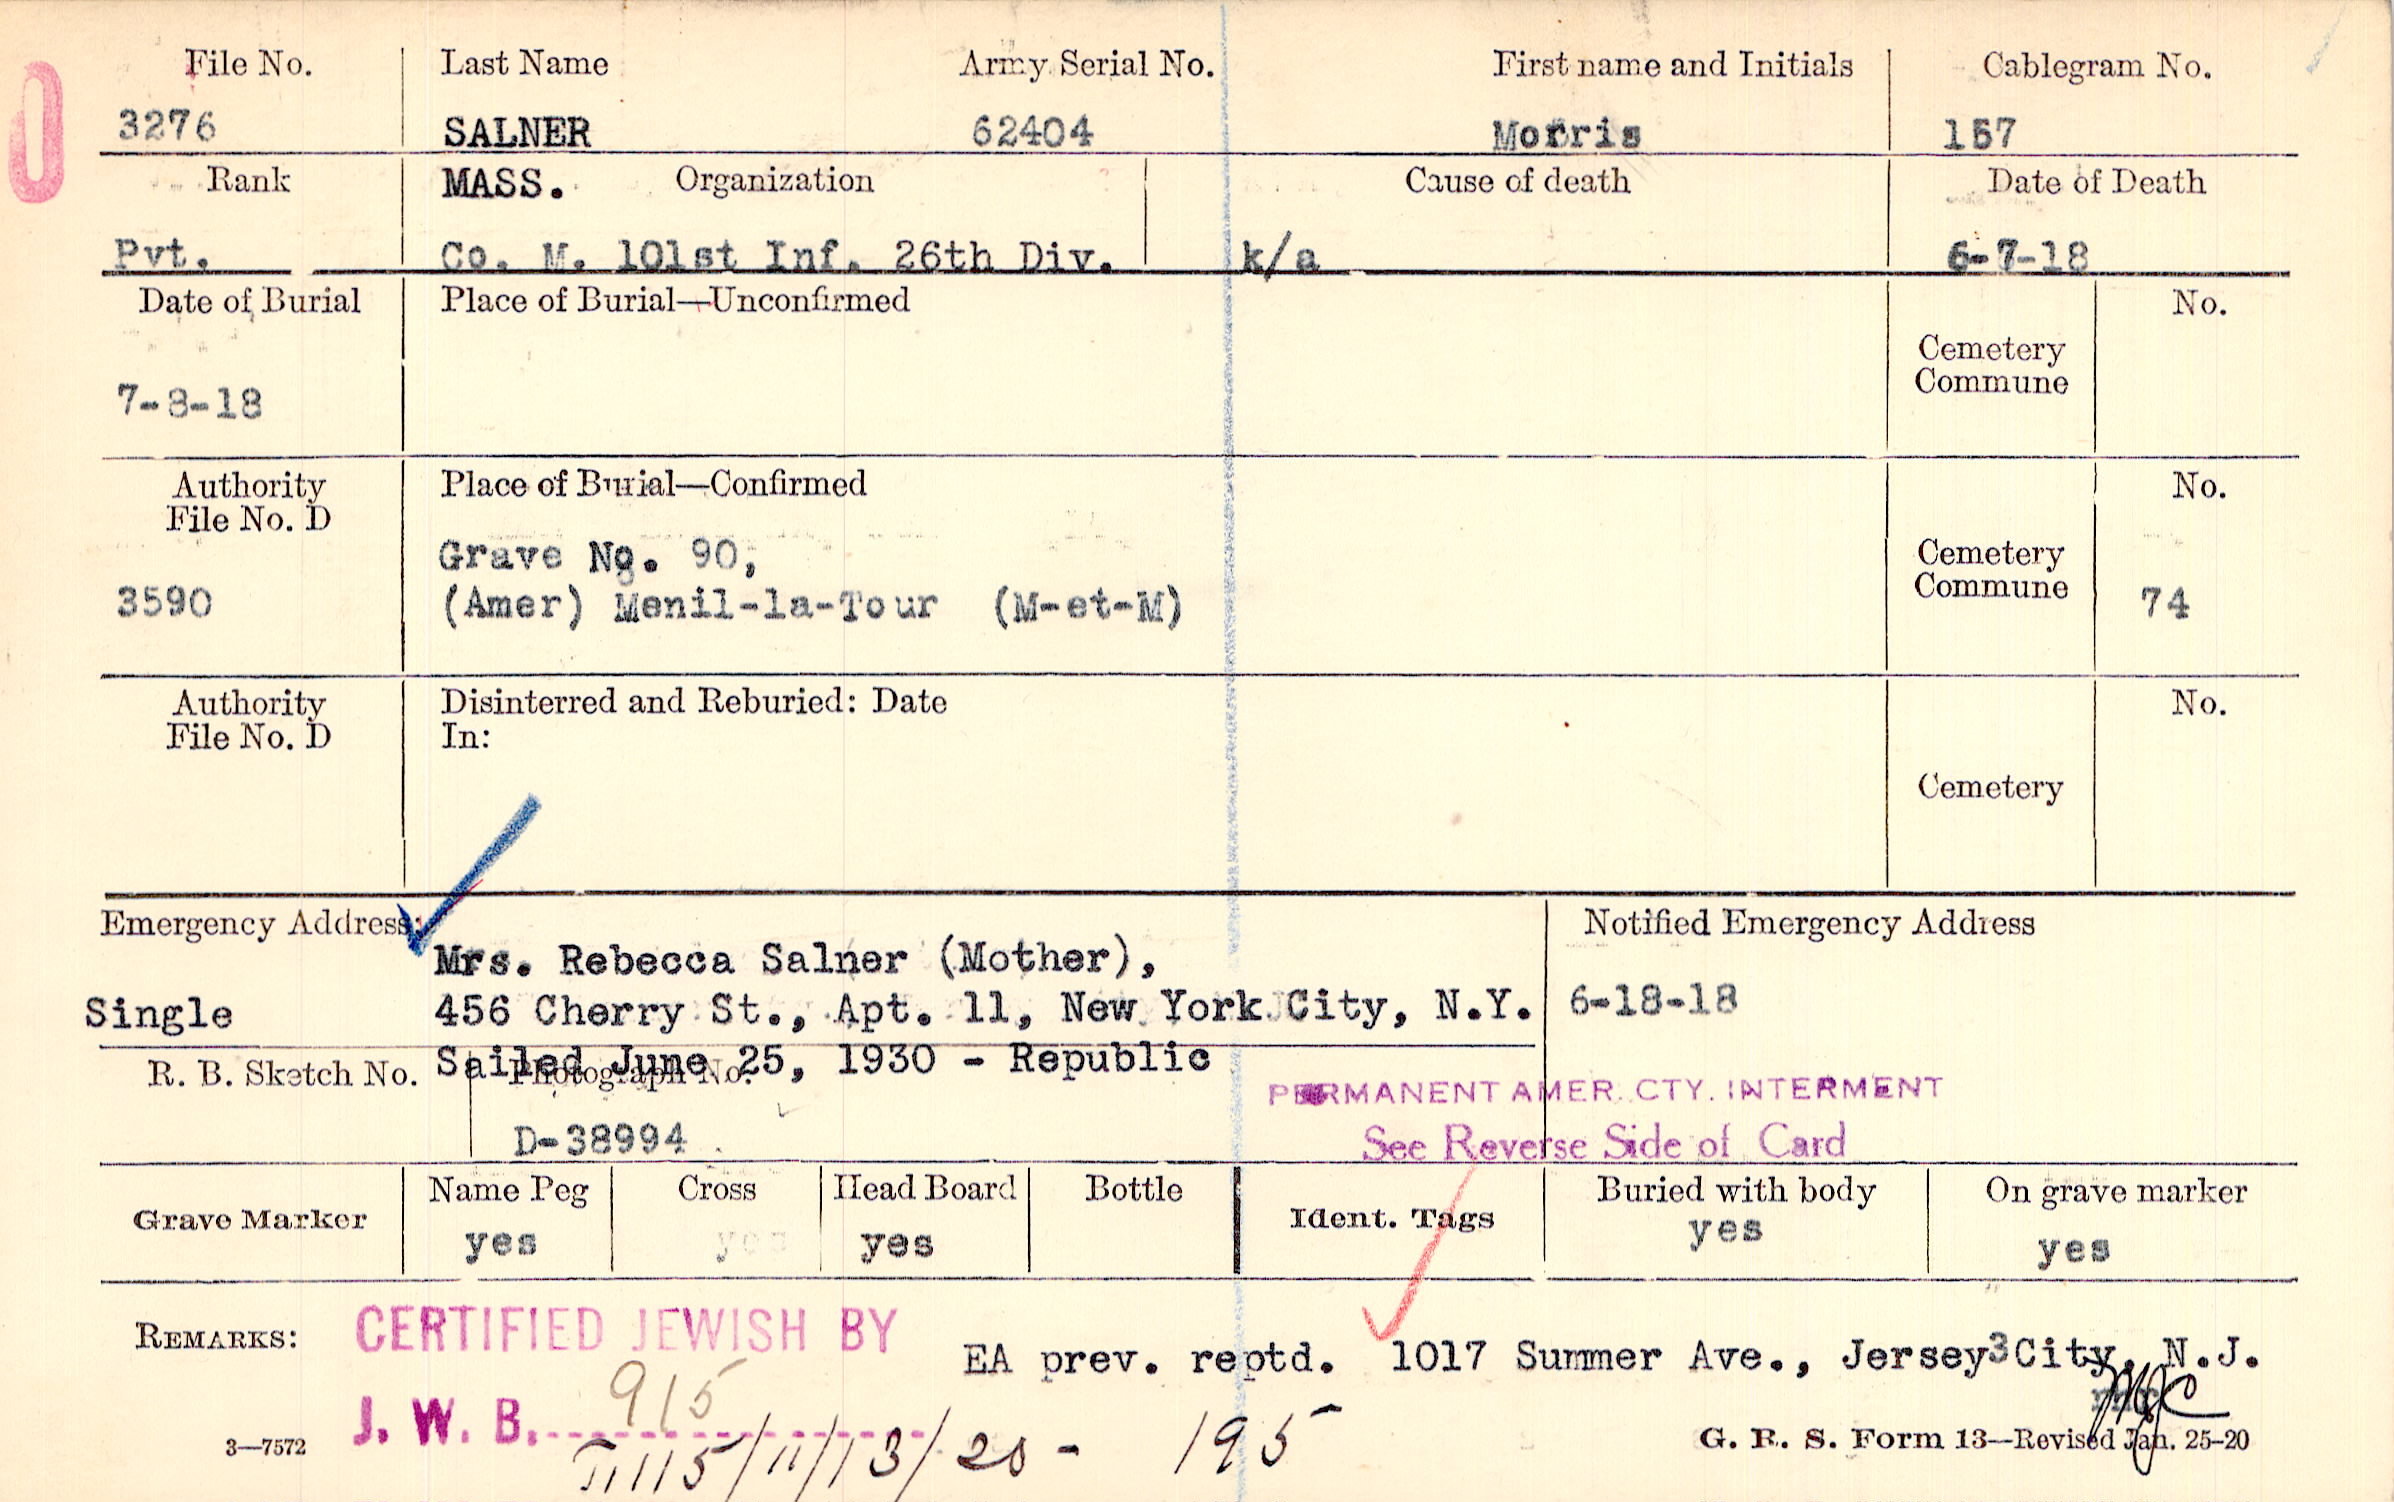 File No. Last Name Army Serial No. First name and Initials Cablegram No.
3276 SALNER 62404 Morris 157
Rank MASS. Organization Cause of death Date of Death
Pvt. Co. M. 101st Inf. 26th Div. k/a 6-7-18
Date of Burial Place of Burial—Unconfirmed No.
Cemetery
Commune
7-8-18
Authority Place of Burial—Confirmed No.
File No. D
Grave No. 90,
Cemetery
Commune
3590 (Amer) Menil-la-Tour (M-et-M) 74
Authority Disinterred and Reburied: Date No.
File No. D In:
Cemetery
Emergency Address: Notified Emergency Address
Mrs. Rebecca Salner (Mother),
Single 456 Cherry St., Apt. 11, New York City, N.Y. 6-18-18
Sailed June 25, 1930 - Republic
R. B. Sketch No. Photograph No.
PERMANENT AMER. CTY. INTERMENT
D-38994 See Reverse Side of Card
Grave Marker Name Peg Cross Head Board Bottle Ident. Tags Buried with body On grave marker
yes yes yes yes yes
REMARKS: CERTIFIED JEWISH BY
EA prev. reptd. 1017 Summer Ave., Jersey 3 City, N.J.
J. W. B. 915
3—7572 G. R. S. Form 13—Revised Jan. 25-20
115/11/13/20 - 195